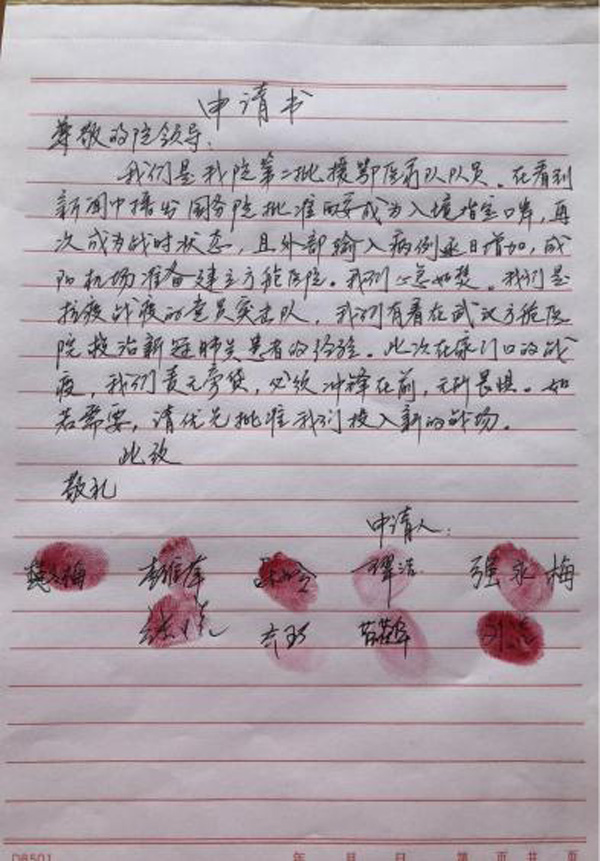 申请书
尊敬的院领导:
我们是我院第二批援鄂医疗队队员。在看到
新闻中播出国务院批准西安成为入境指定口岸,再
次成为战时状态,且外部输入病例逐日增加,咸
阳机场准备建立方舱医院。我们心急如焚。我们是
抗疫战疫的党员突击队,我们有着在武汉方舱医
院救治新冠肺炎患者的经验。此次在家门口的战
疫,我们责无旁贷,必须冲锋在前,无所畏惧。如
若需要,请优先批准我们投入新的战场。
此致
敬礼
申请人:
强永梅
D8501 年 月 日 第 页 共 页